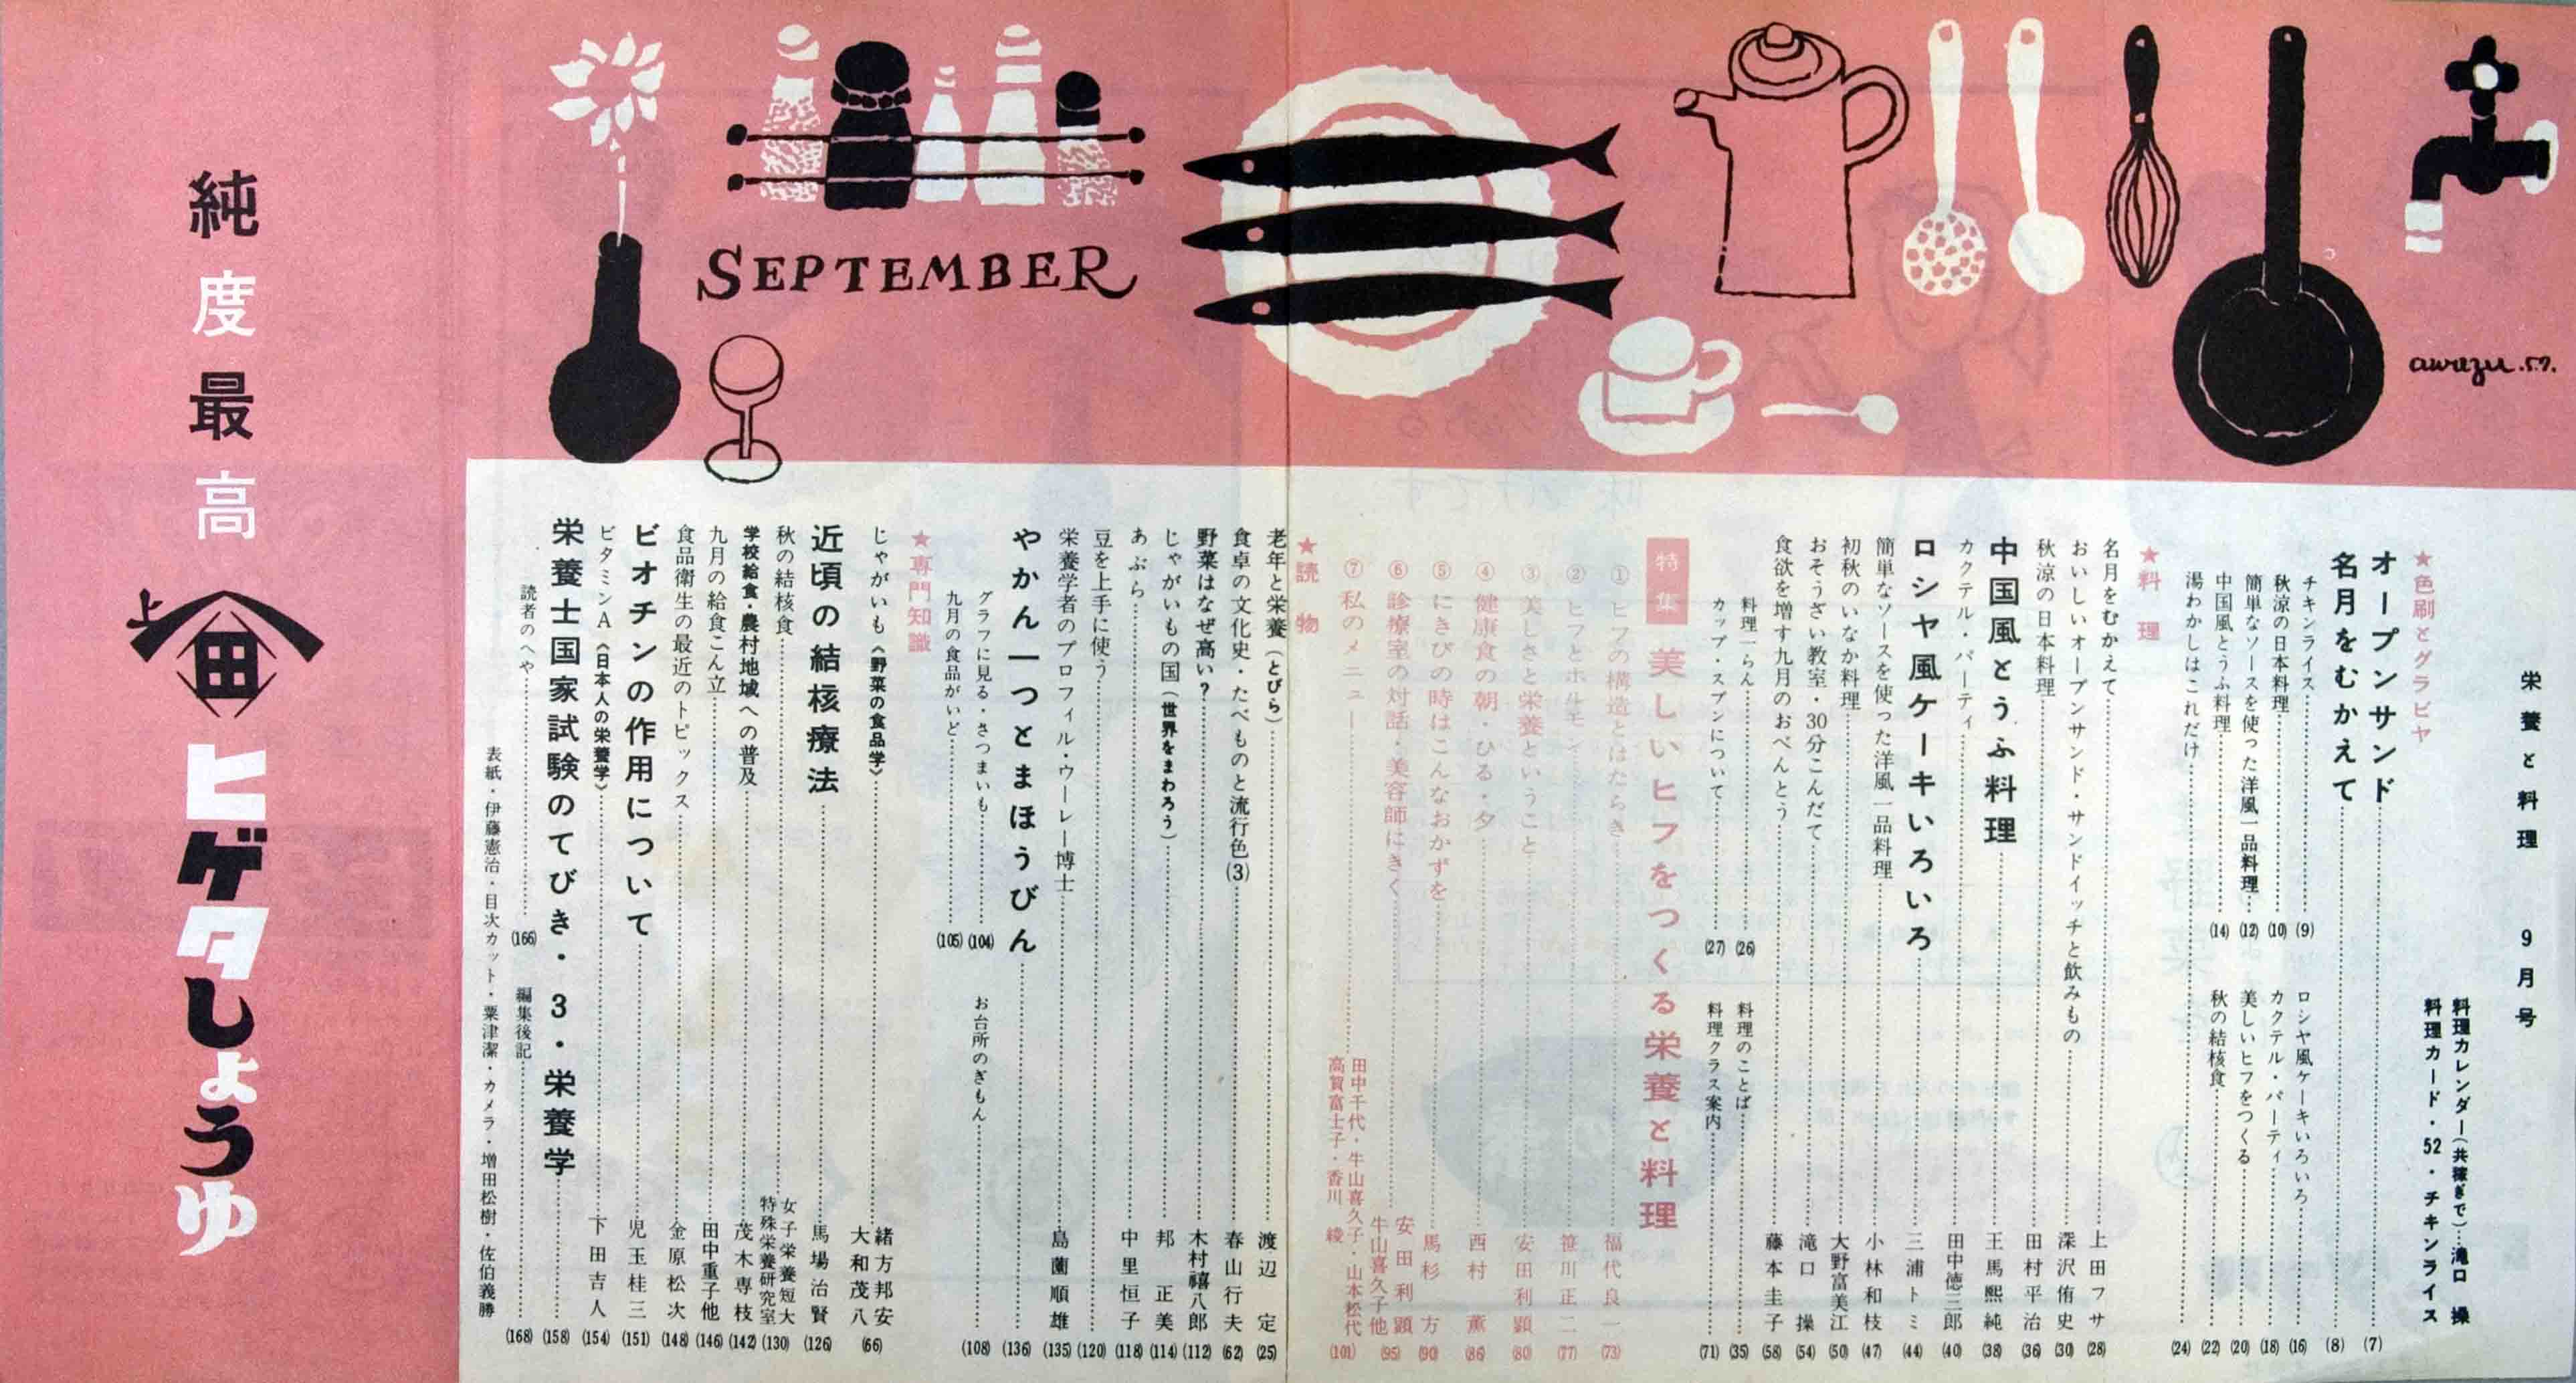 栄養と料理　9月号
料理カレンダー(共稼ぎで)…滝口　操
料理カード・52・チキンライス
★色刷とグラビヤ
オープンサンド (7)
名月をむかえて (8)
チキンライス (9)
秋涼の日本料理 (10)
簡単なソースを使った洋風一品料理 (12)
中国風とうふ料理 (14)
ロシヤ風ケーキいろいろ (16)
カクテル・パーティ (18)
美しいヒフをつくる (20)
秋の結核食 (22)
湯わかしはこれだけ (24)
★料理
名月をむかえて 上田フサ (28)
おいしいオープンサンド・サンドイッチと飲みもの 深沢侑史 (30)
秋涼の日本料理 田村平治 (36)
中国風とうふ料理 王馬熙純 (38)
カクテル・パーティ 田中徳三郎 (40)
ロシヤ風ケーキいろいろ 三浦トミ (44)
簡単なソースを使った洋風一品料理 小林和枝 (47)
初秋のいなか料理 大野富美江 (50)
おそうざい教室・30分こんだて 滝口　操 (54)
食欲を増す九月のおべんとう 藤本圭子 (58)
料理一らん (26)
料理のことば (35)
カップ・スプンについて (27)
料理クラス案内 (71)
特集　美しいヒフをつくる栄養と料理
①ヒフの構造とはたらき 福代良一 (73)
②ヒフとホルモン 笹川正二 (77)
③美しさと栄養ということ 安田利顕 (80)
④健康食の朝・ひる・夕 西村　薫 (86)
⑤にきびの時はこんなおかずを 馬杉　方 (90)
⑥診療室の対話・美容師にきく 安田利顕 牛山喜久子他 (95)
⑦私のメニュー 田中千代・牛山喜久子・山本松代 高賀富士子・香川　綾 (101)
★読物
老年と栄養(とびら) 渡辺　定 (25)
食卓の文化史・たべものと流行色(3) 春山行夫 (62)
野菜はなぜ高い? 木村禧八郎 (112)
じゃがいもの国(世界をまわろう) 邦　正美 (114)
あぶら 中里恒子 (118)
豆を上手に使う (120)
栄養学者のプロフィル・ウーレー博士 島薗順雄 (135)
やかん一つとまほうびん (136)
グラフに見る・さつまいも (104)
お台所のぎもん (108)
九月の食品がいど (105)
★専門知識
じゃがいも《野菜の食品学》 緒方邦安 大和茂八 (66)
近頃の結核療法 馬場治賢 (126)
秋の結核食 女子栄養短大特殊栄養研究室 (130)
学校給食・農村地域への普及 茂木専枝 (142)
九月の給食こん立 田中重子他 (146)
食品衛生の最近のトピックス 金原松次 (148)
ビオチンの作用について 児玉桂三 (151)
ビタミンA《日本人の栄養学》 下田吉人 (154)
栄養士国家試験のてびき・3・栄養学 (158)
読者のへや (166)
編集後記 (168)
表紙・伊藤憲治・目次カット・粟津潔・カメラ・増田松樹・佐伯義勝
SEPTEMBER
awazu.57.
純度最高
上
田
ヒゲタしょうゆ